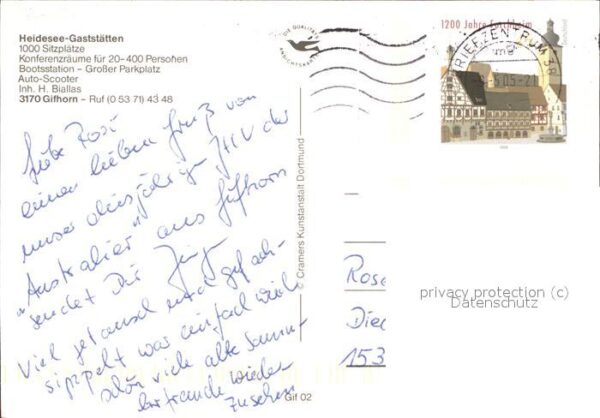 Heidesee-Gaststätten
1000 Sitzplätze
Konferenzräume für 20–400 Personen
Bootsstation – Großer Parkplatz
Auto-Scooter
Inh. H. Biallas
3170 Gifhorn – Ruf (0 53 71) 43 48
Liebe Rosi
einen lieben Gruß von
unser diesjährigen der
"Australier" aus Gifhorn
sendet Dir
Viel getauscht und gefach-
simpelt war einfach wieder
schön viele alte Samm-
lerfreunde wieder
zusehen
© Cramers Kunstanstalt Dortmund
Gif 02
1200 Jahre Forchheim
BRIEFZENTRUM 38
Rose
Died
153
privacy protection (c)
Datenschutz